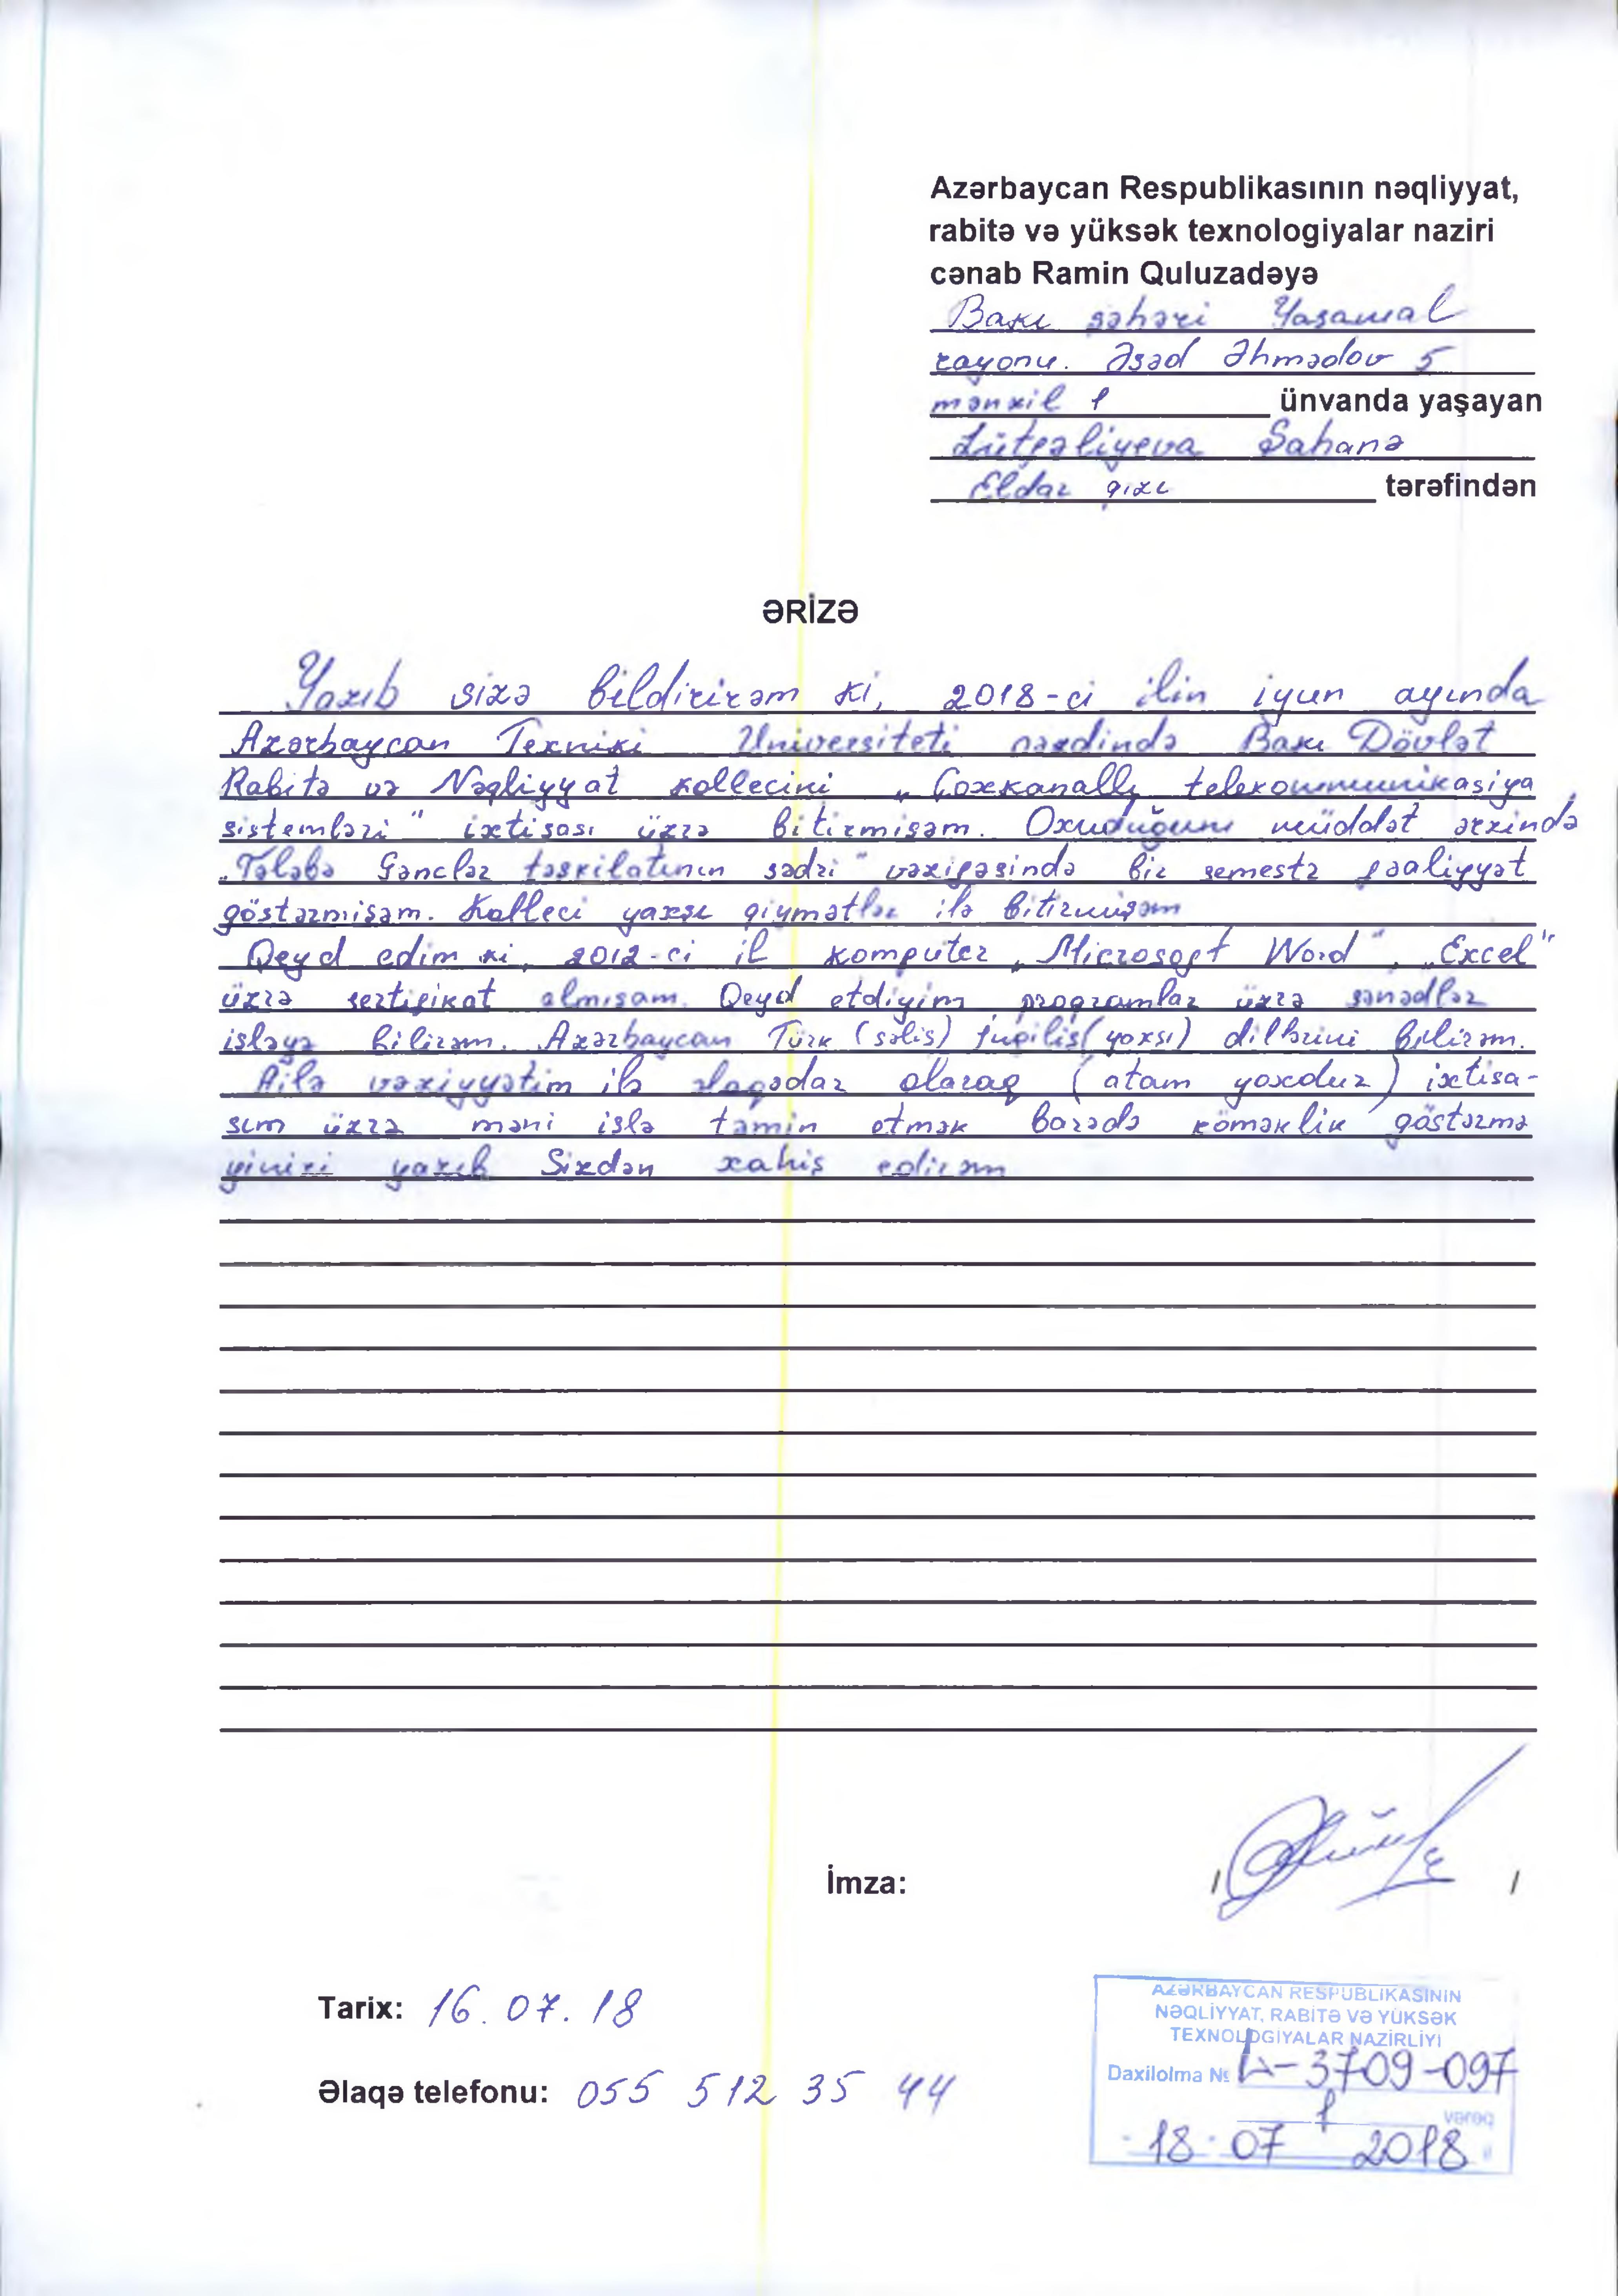 Azərbaycan Respublikasının nəqliyyat,
rabitə və yüksək texnologiyalar naziri
cənab Ramin Quluzadəyə
Bakı şəhəri Yasamal
rayonu. Əsəd Əhmədov 5
mənzil 1 ünvanda yaşayan
Lütfəliyeva Şahanə
Eldar qızı tərəfindən
ƏRİZƏ
Yazıb sizə bildirirəm ki, 2018-ci ilin iyun ayında
Azərbaycan Texniki Universiteti nəzdində Bakı Dövlət
Rabitə və Nəqliyyat kollecini „Çoxkanallı telekommunikasiya
sistemləri" ixtisası üzrə bitirmişəm. Oxuduğum müddət ərzində
„Tələbə Gənclər təşkilatının sədri" vəzifəsində bir semestr fəaliyyət
göstərmişəm. Kolleci yaxşı qiymətlər ilə bitirmişəm
Qeyd edim ki, 2012-ci il komputer „Microsoft Word", „Excel"
üzrə sertifikat almışam. Qeyd etdiyim proqramlar üzrə sənədlər
işləyə bilirəm. Azərbaycan Türk (səlis) İngilis (yaxşı) dillərini bilirəm.
Ailə vəziyyətim ilə əlaqədar olaraq (atam yoxdur) ixtisa-
sım üzrə məni işlə təmin etmək barədə köməklik göstərmə
yinizi yazıb Sizdən xahiş edirəm
İmza: / /
Tarix: 16.07.18
Əlaqə telefonu: 055 512 35 44
AZƏRBAYCAN RESPUBLİKASININ
NƏQLİYYAT, RABİTƏ VƏ YÜKSƏK
TEXNOLOGİYALAR NAZİRLİYİ
Daxilolma № L-3709-097
1 vərəq
18 07 2018 il